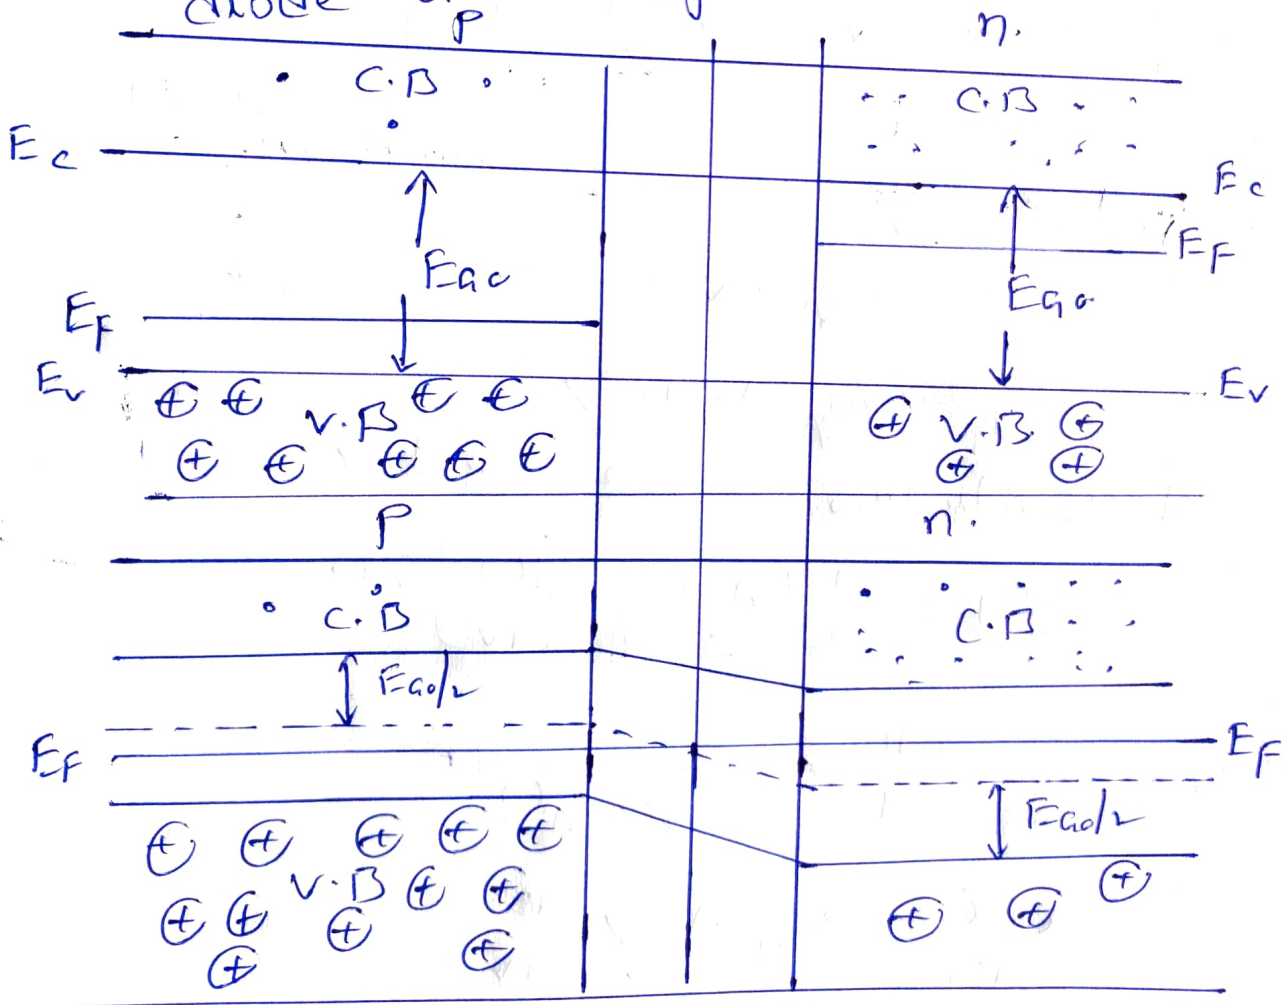 diode
p n.
C.B C.B
Ec Ec
EF
EGo EGo
EF
Ev Ev
V.B V.B.
p n.
C.B C.B
EGo/2
EF EF
EGo/2
V.B